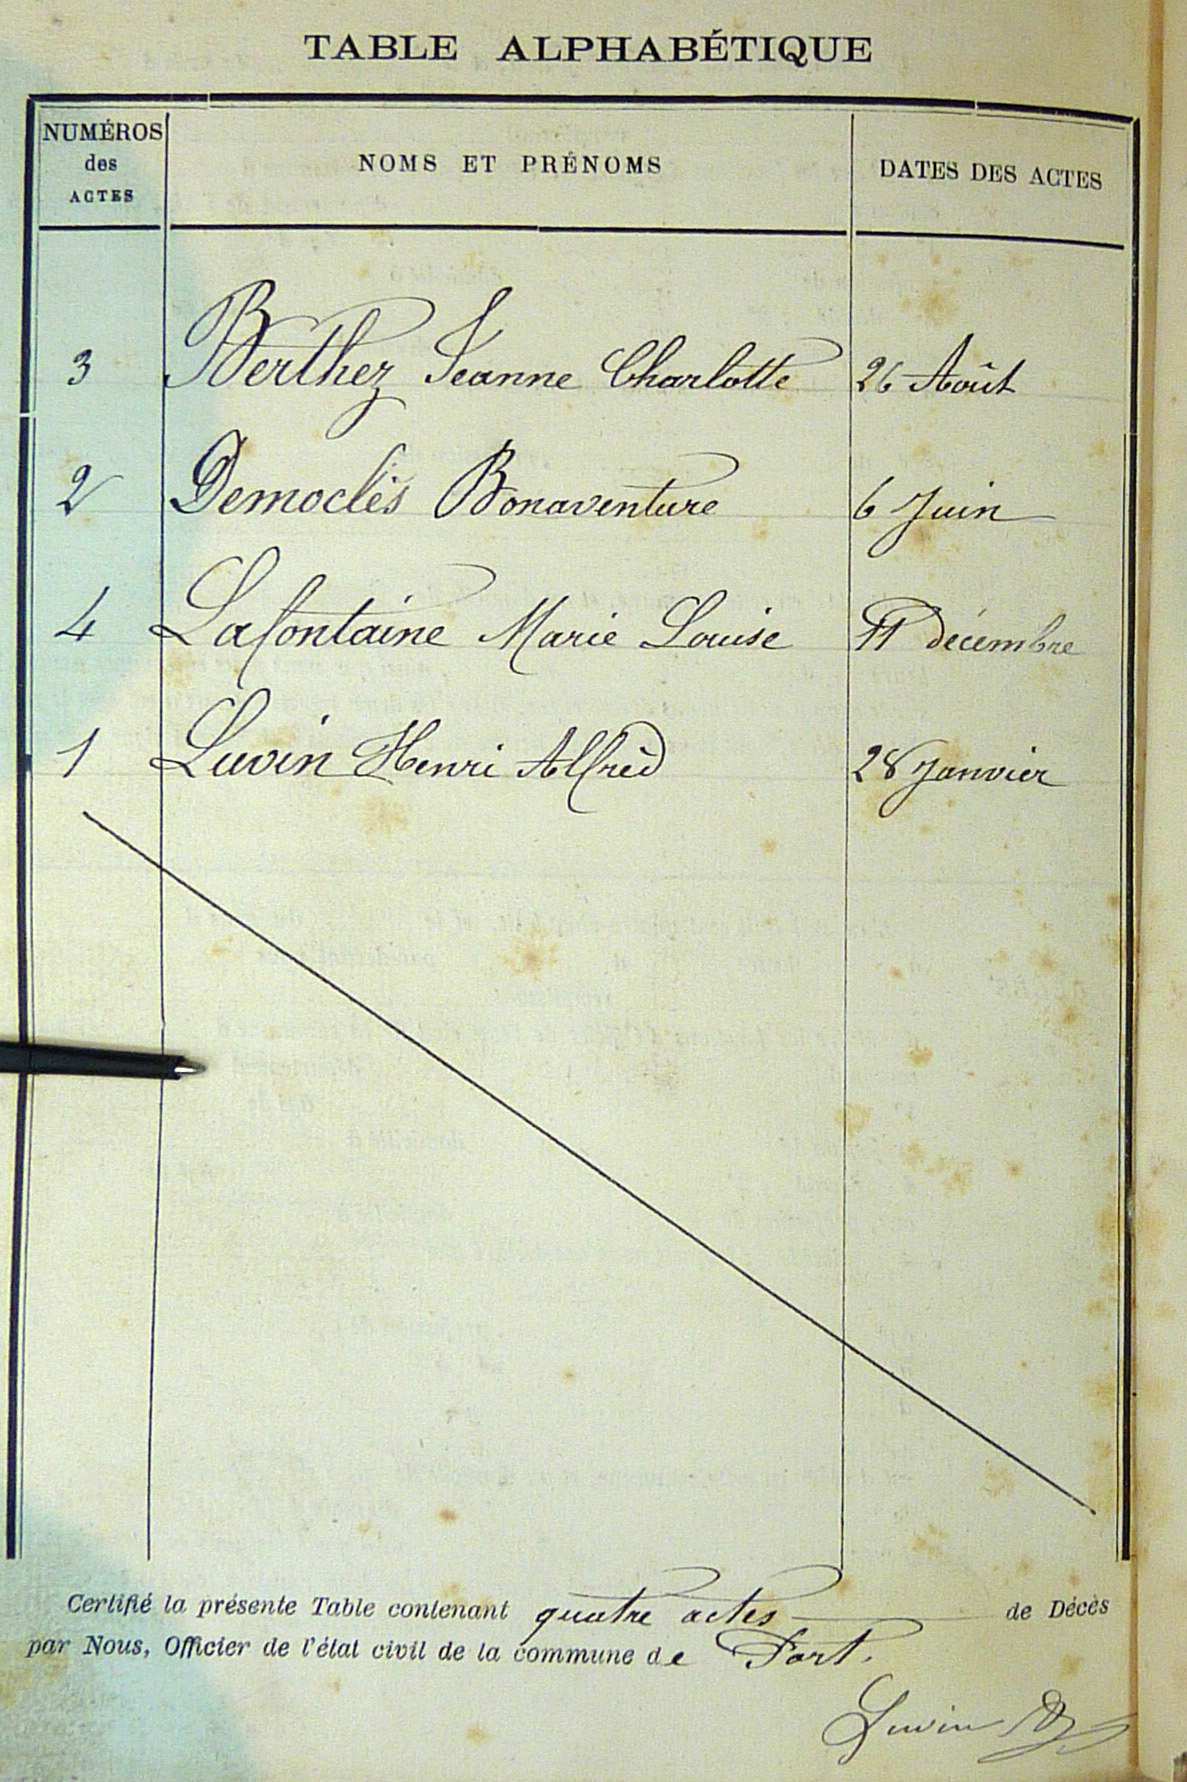 TABLE ALPHABÉTIQUE
NUMÉROS des ACTES NOMS ET PRÉNOMS DATES DES ACTES
3 Berthez Jeanne Charlotte 26 Août
2 Democlès Bonaventure 6 Juin
4 Lafontaine Marie Louise 11 décembre
1 Luvin Henri Alfred 28 Janvier
Certifié la présente Table contenant quatre actes de Décès
par Nous, Officier de l'état civil de la commune de Fort.
Luvin